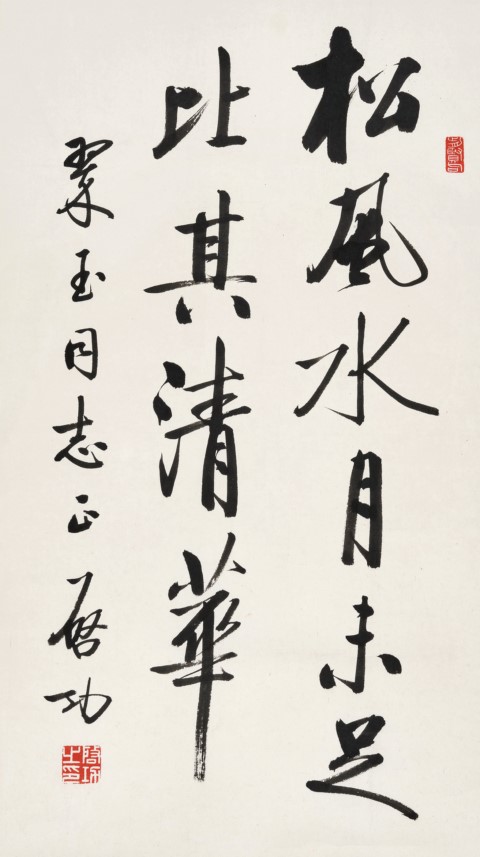 松風水月未足
比其清華
翠玉同志正 啓功
啓功之印